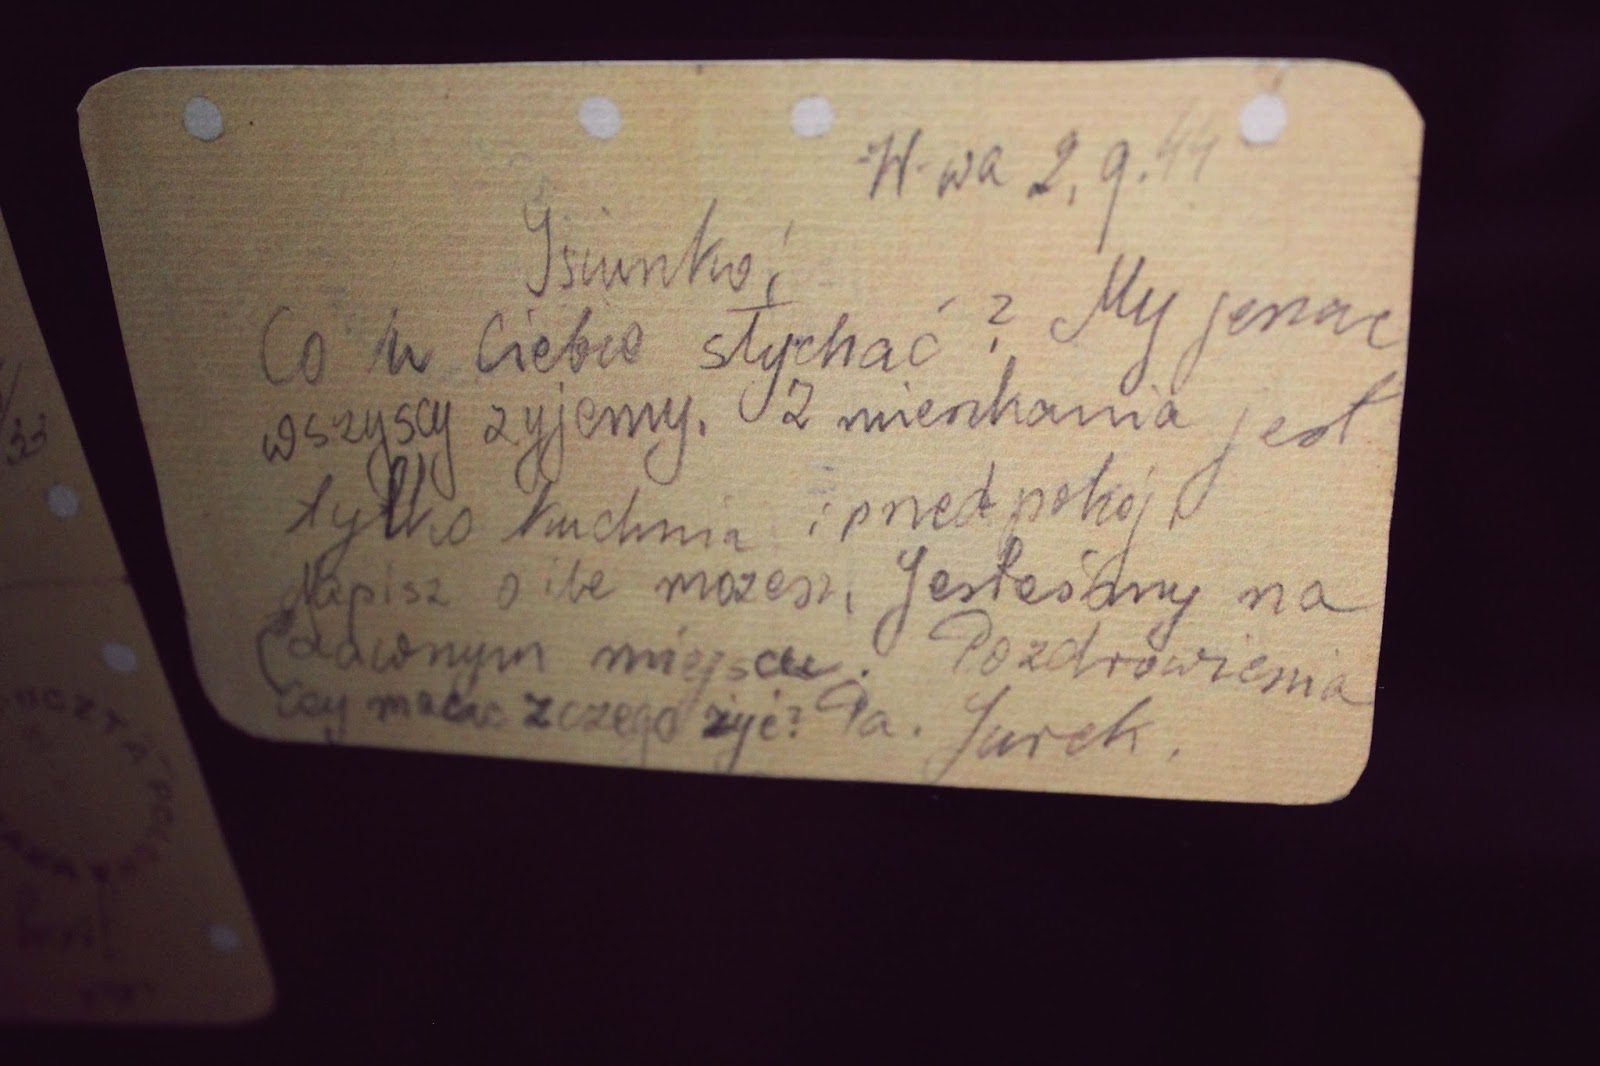 W-wa 2, 9.44
Isiunko,
Co u Ciebie słychać? My jeszcze
wszyscy żyjemy. Z mieszkania jest
tylko kuchnia i przedpokój,
Napisz o ile możesz, Jesteśmy na
dawnym miejscu. Pozdrowienia
Czy macie z czego żyć? Pa. Jurek.
/33
POCZTA POL